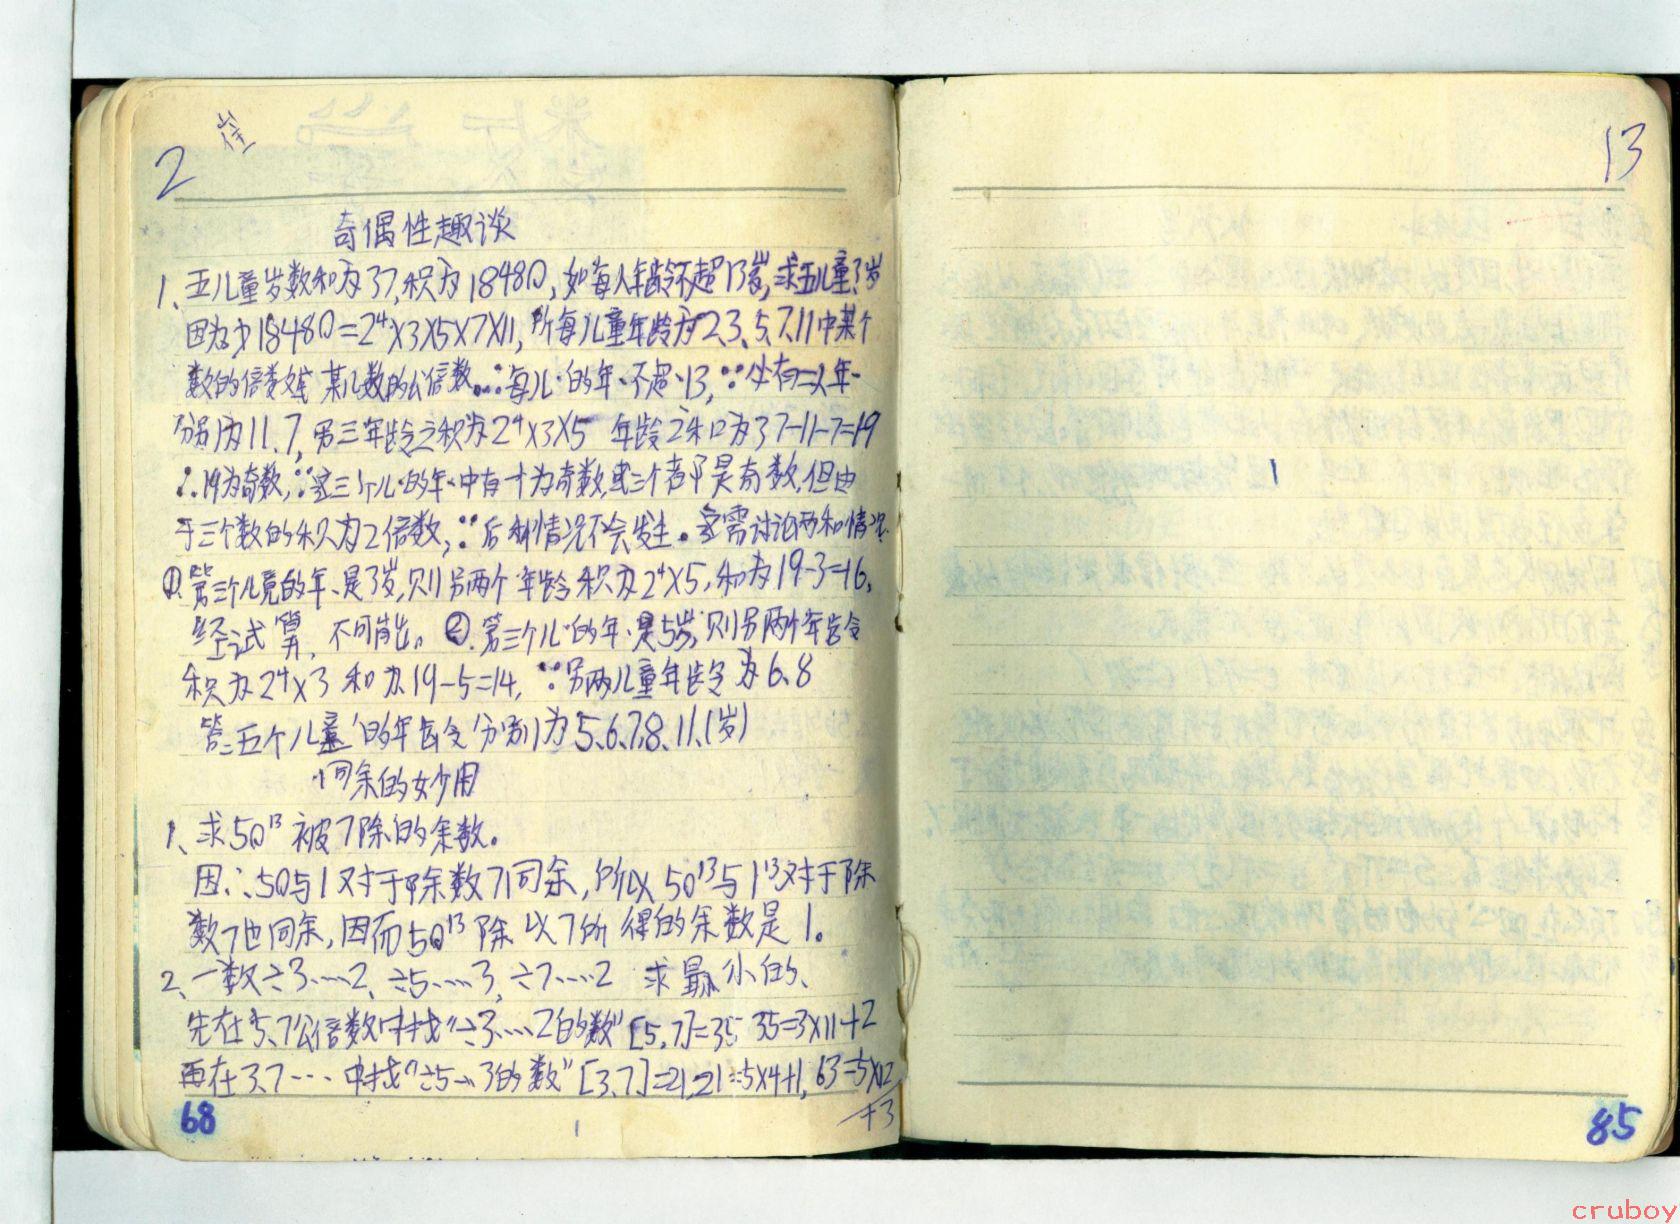 2
奇偶性趣谈
1、五儿童岁数和为37,积为18480,如每人年龄不超13岁,求五儿童?岁
因为 18480=2⁴×3×5×7×11,所每儿童年龄为2、3、5、7、11中某个
数的倍数或某几数的公倍数。∴每儿·的年·不超·13,∵必有二人年·
分别为11、7,另三年龄之积为2⁴×3×5 年龄之和为37-11-7=19
∴19为奇数,∵这三个儿·的年·中有一个为奇数,或三个都是奇数,但由
于三个数的积为2倍数,∵后种情况不会发生。这需讨论两种情况
①.第三个儿童的年·是3岁,则另两个年龄积为2⁴×5,和为19-3=16,
经试算,不可能出。②.第三个儿·的年·是5岁,则另两个年龄
积为2⁴×3 和为19-5=14,∵另两儿童年龄为6、8
答:五个儿童的年龄分别为5、6、7、8、11、(岁)
同余的妙用
1、求50¹³被7除的余数。
因∴50与1对于除数7同余,所以50¹³与1¹³对于除
数7也同余,因而50¹³除以7所得的余数是1。
2、一数÷3……2、÷5……3,÷7……2 求最小的、
先在5、7公倍数中找"÷3……2的数"[5,7]=35 35=3×11+2
再在3、7……中找"÷5…3的数"[3,7]=21,21=5×4+1, 63=5×12
+3
68
1
13
1
85
cruboy